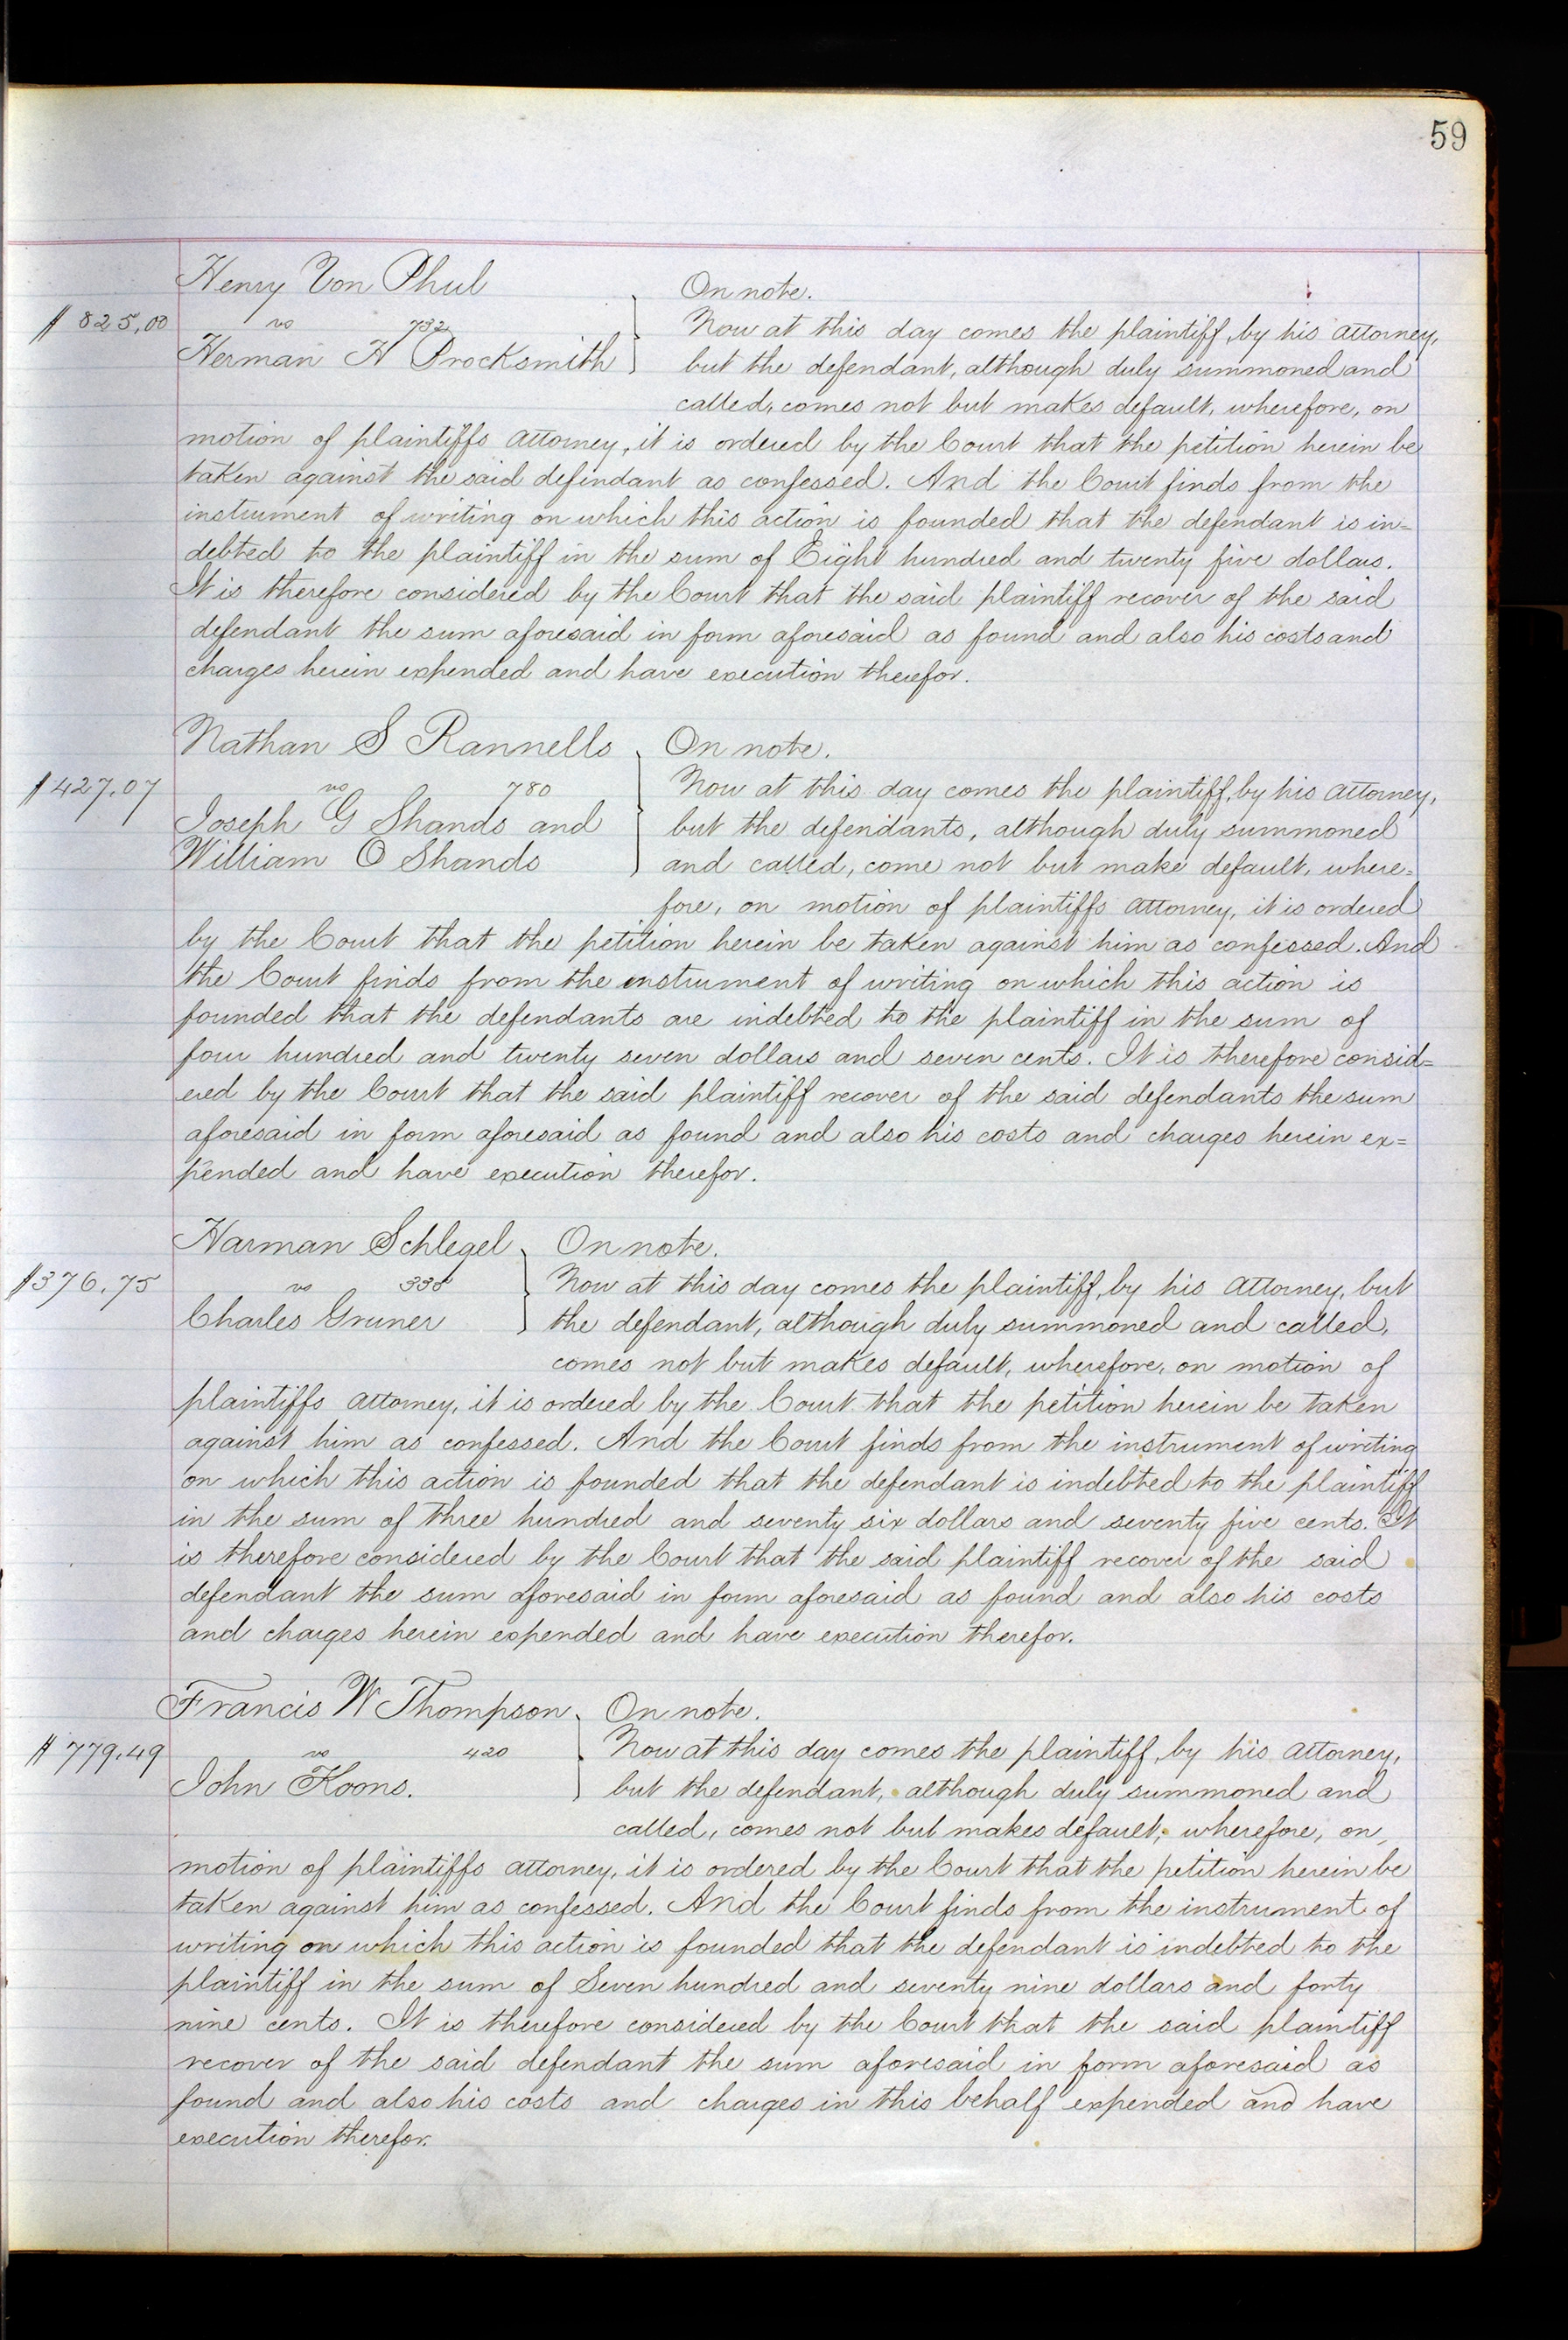 59
Henry Von Phul
On note.
$ 825,00
vs 732
Now at this day comes the plaintiff, by his attorney,
Herman H Procksmith
but the defendant, although duly summoned and
called, comes not but makes default, wherefore, on
motion of plaintiffs attorney, it is ordered by the Court that the petition herein be
taken against the said defendant as confessed. And the Court finds from the
instrument of writing on which this action is founded that the defendant is in=
debted to the plaintiff in the sum of Eight hundred and twenty five dollars.
It is therefore considered by the Court that the said plaintiff recover of the said
defendant the sum aforesaid in form aforesaid as found and also his costs and
charges herein expended and have execution therefor.
Nathan S Rannells
On note.
$427.07
vs 780
Now at this day comes the plaintiff, by his attorney,
Joseph G Shands and
but the defendants, although duly summoned
William O Shands
and called, come not but make default, where=
fore, on motion of plaintiffs attorney, it is ordered
by the Court that the petition herein be taken against him as confessed. And
the Court finds from the instrument of writing on which this action is
founded that the defendants are indebted to the plaintiff in the sum of
four hundred and twenty seven dollars and seven cents. It is therefore consid=
ered by the Court that the said plaintiff recover of the said defendants the sum
aforesaid in form aforesaid as found and also his costs and charges herein ex=
pended and have execution therefor.
Harman Schlegel
On note.
$376.75
vs 338
Now at this day comes the plaintiff, by his attorney, but
Charles Gruner
the defendant, although duly summoned and called,
comes not but makes default, wherefore, on motion of
plaintiffs attorney, it is ordered by the Court that the petition herein be taken
against him as confessed. And the Court finds from the instrument of writing
on which this action is founded that the defendant is indebted to the plaintiff
in the sum of three hundred and seventy six dollars and seventy five cents. It
is therefore considered by the Court that the said plaintiff recover of the said
defendant the sum aforesaid in form aforesaid as found and also his costs
and charges herein expended and have execution therefor.
Francis W Thompson
On note.
$ 779.49
vs 420
Now at this day comes the plaintiff, by his attorney,
John Koons.
but the defendant, although duly summoned and
called, comes not but makes default, wherefore, on
motion of plaintiffs attorney, it is ordered by the Court that the petition herein be
taken against him as confessed. And the Court finds from the instrument of
writing on which this action is founded that the defendant is indebted to the
plaintiff in the sum of Seven hundred and seventy nine dollars and forty
nine cents. It is therefore considered by the Court that the said plaintiff
recover of the said defendant the sum aforesaid in form aforesaid as
found and also his costs and charges in this behalf expended and have
execution therefor.